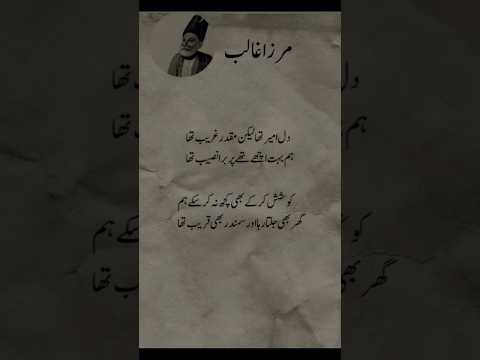 مرزا غالب
دل امیر تھا لیکن مقدر غریب تھا
ہم بہت اچھے تھے پر برا نصیب تھا
کوشش کر کے بھی کچھ نہ کر سکے ہم
گھر بھی جلتا رہا اور سمندر بھی قریب تھا